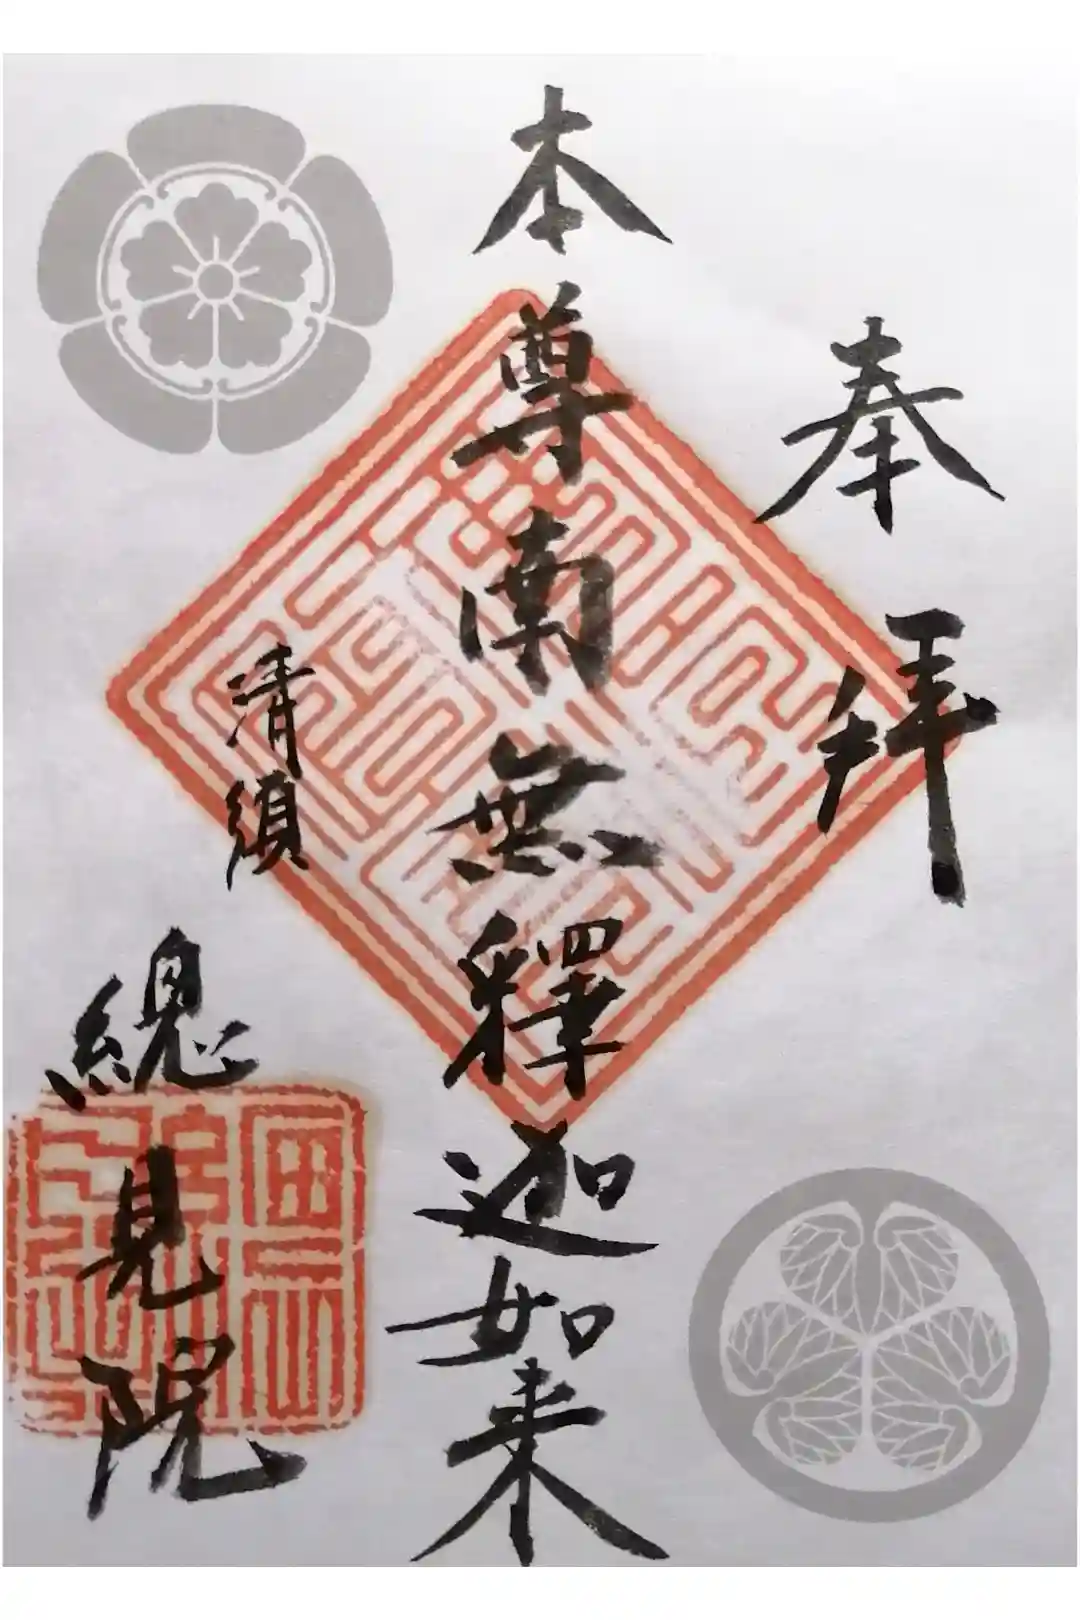 奉拜
本尊南無釋迦如来
清須
總見院